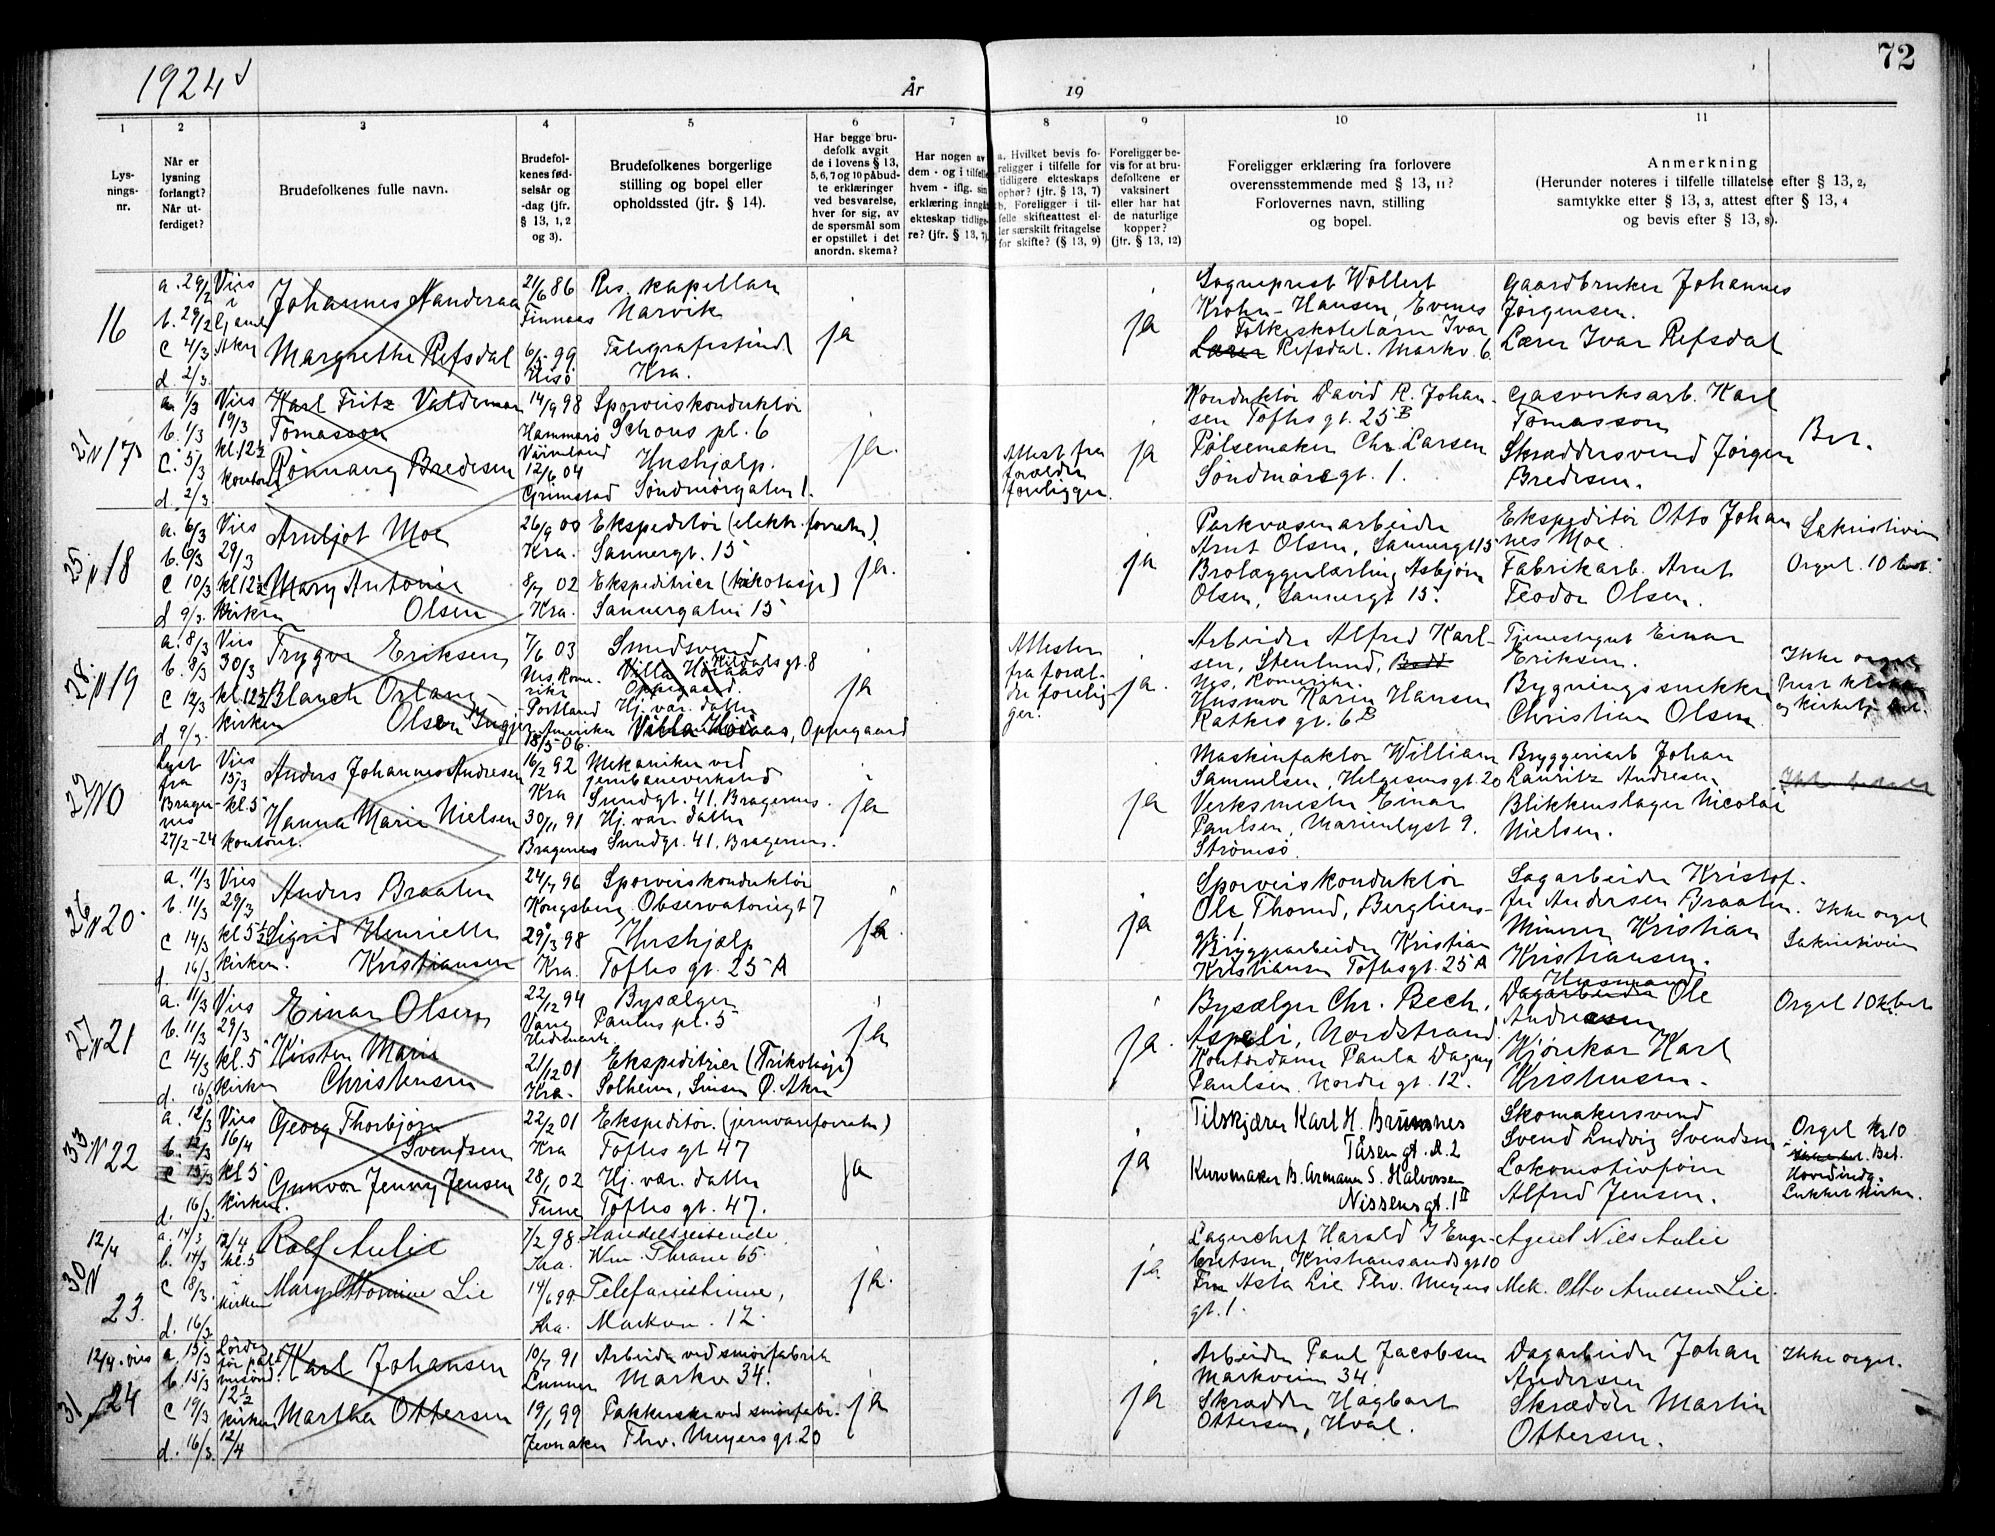 1924
År
19
72
1
2
3
4
5
6
7
8
9
10
11
Lys-
nings-
nr.
Når er
lysning
forlangt?
Når ut-
ferdiget?
Brudefolkenes fulle navn.
Brudefol-
kenes fød-
selsår og
-dag (jfr.
§ 13, 1, 2
og 3).
Brudefolkenes borgerlige
stilling og bopel eller
opholdssted (jfr. § 14).
Har begge bru-
defolk avgit
de i lovens § 13,
5, 6, 7 og 10 påbud-
te erklæringer
ved besvarelse,
hver for sig, av
de spørsmål som
er opstillet i det
anordn. skema?
Har nogen av
dem - og i tilfelle
hvem - iflg. sin
erklæring inngått
ekteskap tidlige-
re? (jfr. § 13, 7).
a. Hvilket bevis fo-
religger i tilfelle for
tidligere ekteskaps
ophør? (jfr. § 13, 7)
b. Foreligger i til-
felle skifteattest el-
ler særskilt fritagelse
for skifte? (§ 13, 9)
Foreligger be-
vis for at bru-
defolkene er
vaksinert
eller har hat
de naturlige
kopper?
(jfr. § 13, 12)
Foreligger erklæring fra forlovere
overensstemmende med § 13, 11?
Forlovernes navn, stilling
og bopel.
Anmerkning
(Herunder noteres i tilfelle tillatelse efter § 13, 2,
samtykke efter § 13, 3, attest efter § 13, 4
og bevis efter § 13, 8).
16
a. 29/2
b. 29/2
c 4/3
d. 2/3.
Vies
i
Gamle
Aker
Johannes Handeraa
Margrethe Refsdal
21/6 86
Finnaas
99
Res. kapellan
Narvik
Telegrafistinde
Kra.
ja
ja
Sogneprest Wollert
Krohn-Hansen, Evenes
Folkeskolelærer Ivar
Lærer Refsdal. Markv. 6
Gaardbruker Johannes
Jørgensen.
Lærer Ivar Refsdal
21
N 17
a. 1/3
b. 1/3
c. 5/3
d. 2/3
Vies
19/3
kl 12½
kontoret
Karl Fritz Valdemar
Tomasson
Rönnaug Bredesen
14/9 98
Hammarö
Värmland
12/6 04
Grimstad
Sporveiskonduktör
Schous pl. 6
Hushjælp.
Söndmörgaten 1.
ja.
Attest fra
forældre
foreligger.
ja
Konduktör David R. Johan-
sen Toftes gt. 25 B
Pölsemaker Chr. Larsen
Söndmörsgt. 1.
Gasverksarb. Karl
Tomasson
Skræddersvend Jørgen
Bredesen.
Bet.
25
N 18
a. 6/3
b. 6/3
c 10/3
d 9/3.
Vies
29/3
kl 12½
kirken
Arnljot Moe
Mary Antonie
Olsen
26/9 00
Kra.
8/7 02
Kra.
Ekspeditör (elektr. forretn.)
Sannergt. 15
Ekspeditrice (trikotasje)
Sannergaten 15
ja.
ja
Parkvæsenarbeider
Arnt Olsen, Sannergt 15
Brolæggerlærling Asbjørn
Olsen, Sannergt 15.
Ekspeditör Otto Johan
nes Moe
Fabrikarb. Arnt
Teodor Olsen.
Sakristiein
Orgel. 10
28
N 19
a. 8/3
b. 8/3
c 12/3
d 9/3.
Vies
30/3
kl. 12½
kirken
Trygve Eriksen
Blanch Orlang
Olsen
7/6 03
Nes. Rome-
rike
Portland
Amerika
18/5 06.
Smedsvend
gt. 8
Oppegaard.
Hj. vær. datter
Oppegaard
ja
Attester
fra foræl-
dre forelig
ger.
ja.
Arbeider Alfred Karl-
sen, Stenlund,
Nes, Romerike.
Husmor Karen Hansen
Ratkes gt. 6 B
Einar
Eriksen.
Bygningssnekker
Christian Olsen
Ikke orgel
22
Lyst
fra
Brager-
nes
27/2-24
Vies
15/3
kl. 5
kontoret.
Anders Johannes Andresen
Hanna Marie Nielsen
16/2 92
Kra
30/1 91
Bragernes
Mekaniker ved
jernbaneverksted
Sundgt. 41, Bragernes.
Hj. vær. datter
Sundgt. 41, Bragernes.
ja
ja
Maskinfaktor William
Samuelsen, Helgesensgt. 20
Verksmester Einar
Paulsen, Marienlyst 9.
Strömsö.
Bryggeriarb Johan
Lauritz Andresen
Blikkenslager Nicolai
Nielsen.
26
N 20
a. 11/3
b. 11/3
c 14/3
d. 16/3
Vies
29/3
kl 5½
kirken.
Anders Braaten
Sigrid Henriette
Kristiansen
24/7 96
Kongsberg
29/3 98
Kra.
Sporveiskonduktör
Observatoriegt 7
Hushjælp
Toftes gt. 25 A
ja.
ja
Sporveiskonduktör
Ole Thorud, Bergliens-
gt. 1
Bryggeriarbeider Kristian
Kristiansen Toftesgt. 25 A
Sagarbeider Kristof-
fer Andersen Braaten.
Minerer Kristian
Kristiansen.
Ikke orgel
Sakristiein
27
N 21
a. 11/3
b. 11/3
c 14/3
d. 16/3
Vies
29/3
kl. 5
kirken
Einar Olsen
Kirsten Marie
Christensen
22/12 94
Vang
Hedmark.
21/12 01
Kra.
Bysælger
Paulus pl. 5
Ekspeditrice (Trikotasje)
Solheim, Sinsen Ø. Aker
ja
ja.
Bysælger Chr. Bech,
Aspeli, Nordstrand
Kontordame Paula Dagny
Paulsen. Nordre gt. 12.
Husmand
Dagarbeider Ole
Andresen
Kjörekar Karl
Kristensen.
Orgel 10 kr bet
33
N 22
a. 12/3
b. 12/3
c 15/3
d. 16/3.
Vies
16/4
kl 5
kirken.
Georg Thorbjörn
Svendsen
Gunvor Jenny Jensen
22/2 01
Kra
28/1 02
Ekspeditör. (jernvareforretn)
Toftes gt 47
Hj. vær. datter
Toftes gt. 47.
ja
ja
Tilskjærer Karl H. Brumnes
Tåsen gt. 2
Kurvmaker B. Armann S. Halvorsen
Nissens gt. 1 II
Skomakersvend
Svend Ludvig Svendsen
Lokomotivförer
Alfred Jensen.
Orgel kr 10
Bet.
Hovedindg.
Lukket kirke.
12/4
30
N
23.
a. 14/3
b. 14/3
c 18/3.
d. 16/3
12/4
kl. 5
i
kirken
Rolf Aulie
Mary Ottomine Lie
7/2 98
Kra.
14/6 99
Kra.
Handelsreisende
Wm. Thrane 65.
Telefonistinne,
Markvn. 12.
ja.
ja
Lagerchef Harald J Enge-
bretsen, Kristiansandsgt 10
Fru Asta Lie Thv. Meyers
gt. 1.
Agent Nils Aulie
Mek. Otto Arnesen Lie.
12/4. vies
31
24
a. 15/3
b. 15/3
c 19/3
d. 16/3.
Lördag
för palme
sönd.
12½
kirken
12/4
Karl Johansen
Martha Ottersen
10/7 91
Lunner
19/1 99
Jevnaker
Arbeider ved smörfabrik
Markv 34.
Pakkerske ved smörfabr.
Thv. Meyers gt. 20
ja
ja
Arbeider Paul Jacobsen
Markveien 34
Skrædder Hagbart
Ottersen, Hval.
Dagarbeider Johan
Andersen
Skrædder Martin
Ottersen.
Ikke orgel.